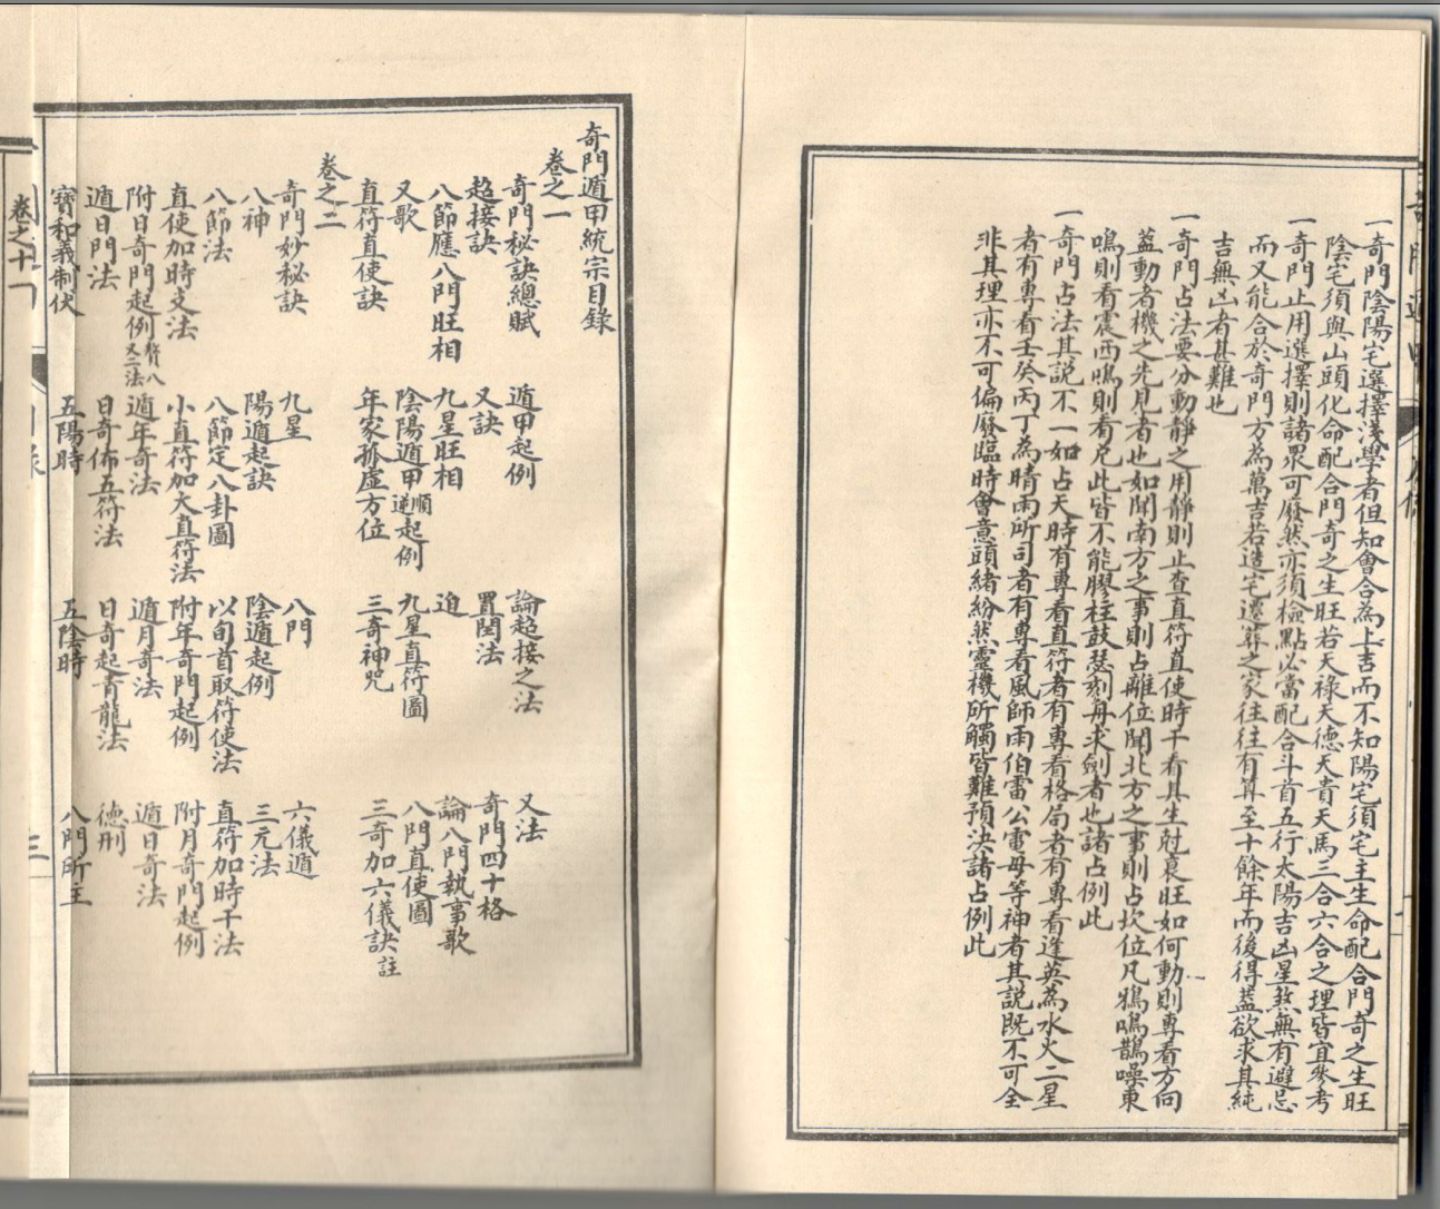 一奇門陰陽宅選擇淺學者但知會合為上吉而不知陽宅須宅主生命配合門奇之生旺
陰宅須與山頭化命配合門奇之生旺若天祿天德天貴天馬三合六合之理皆宜參考
一奇門止用選擇則諸眾可廢然亦須檢點必當配合斗首五行太陽吉凶星煞無有避忌
而又能合於奇門方為萬吉若造宅遷葬之家往往有算至十餘年而後得蓋欲求其純
吉無凶者甚難也
一奇門占法要分動靜之用靜則止查直符直使時干看其生尅衰旺如何動則專看方向
蓋動者機之先見者也如聞南方之事則占離位聞北方之事則占坎位凡鴉鳴鵲噪東
鳴則看震西鳴則看兌此皆不能膠柱鼓瑟刻舟求劍者也諸占例此
一奇門占法其説不一如占天時有專看直符者有專看格局者有專看逢英為水火二星
者有專看壬癸丙丁為晴雨所司者有專看風師雨伯雷公電母等神者其説既不可全
非其理亦不可偏廢臨時會意頭緒紛然靈機所觸皆難預決諸占例此
奇門遁甲統宗目錄
卷之一
奇門秘訣總賦 遁甲起例 論超接之法 又法
超接訣 又訣 置閏法 奇門四十格
八節應八門旺相 九星旺相 迫 論八門執事歌
又歌 陰陽遁甲順逆起例 九星直符圖 八門直使圖
直符直使訣 年家孤虛方位 三奇神咒 三奇加六儀訣註
卷之二
奇門妙秘訣 九星 八門 六儀遁
八神 陽遁起訣 陰遁起例 三元法
八節法 八節定八卦圖 以旬首取符使法 直符加時干法
直使加時支法 小直符加大直符法 附年奇門起例 附月奇門起例
附日奇門起例又二法 遁年奇法 遁月奇法 遁日奇法
遁日門法 日奇佈五符法 日奇起青龍法 德刑
寶和義制伏 五陽時 五陰時 八門所主
三
卷之十一